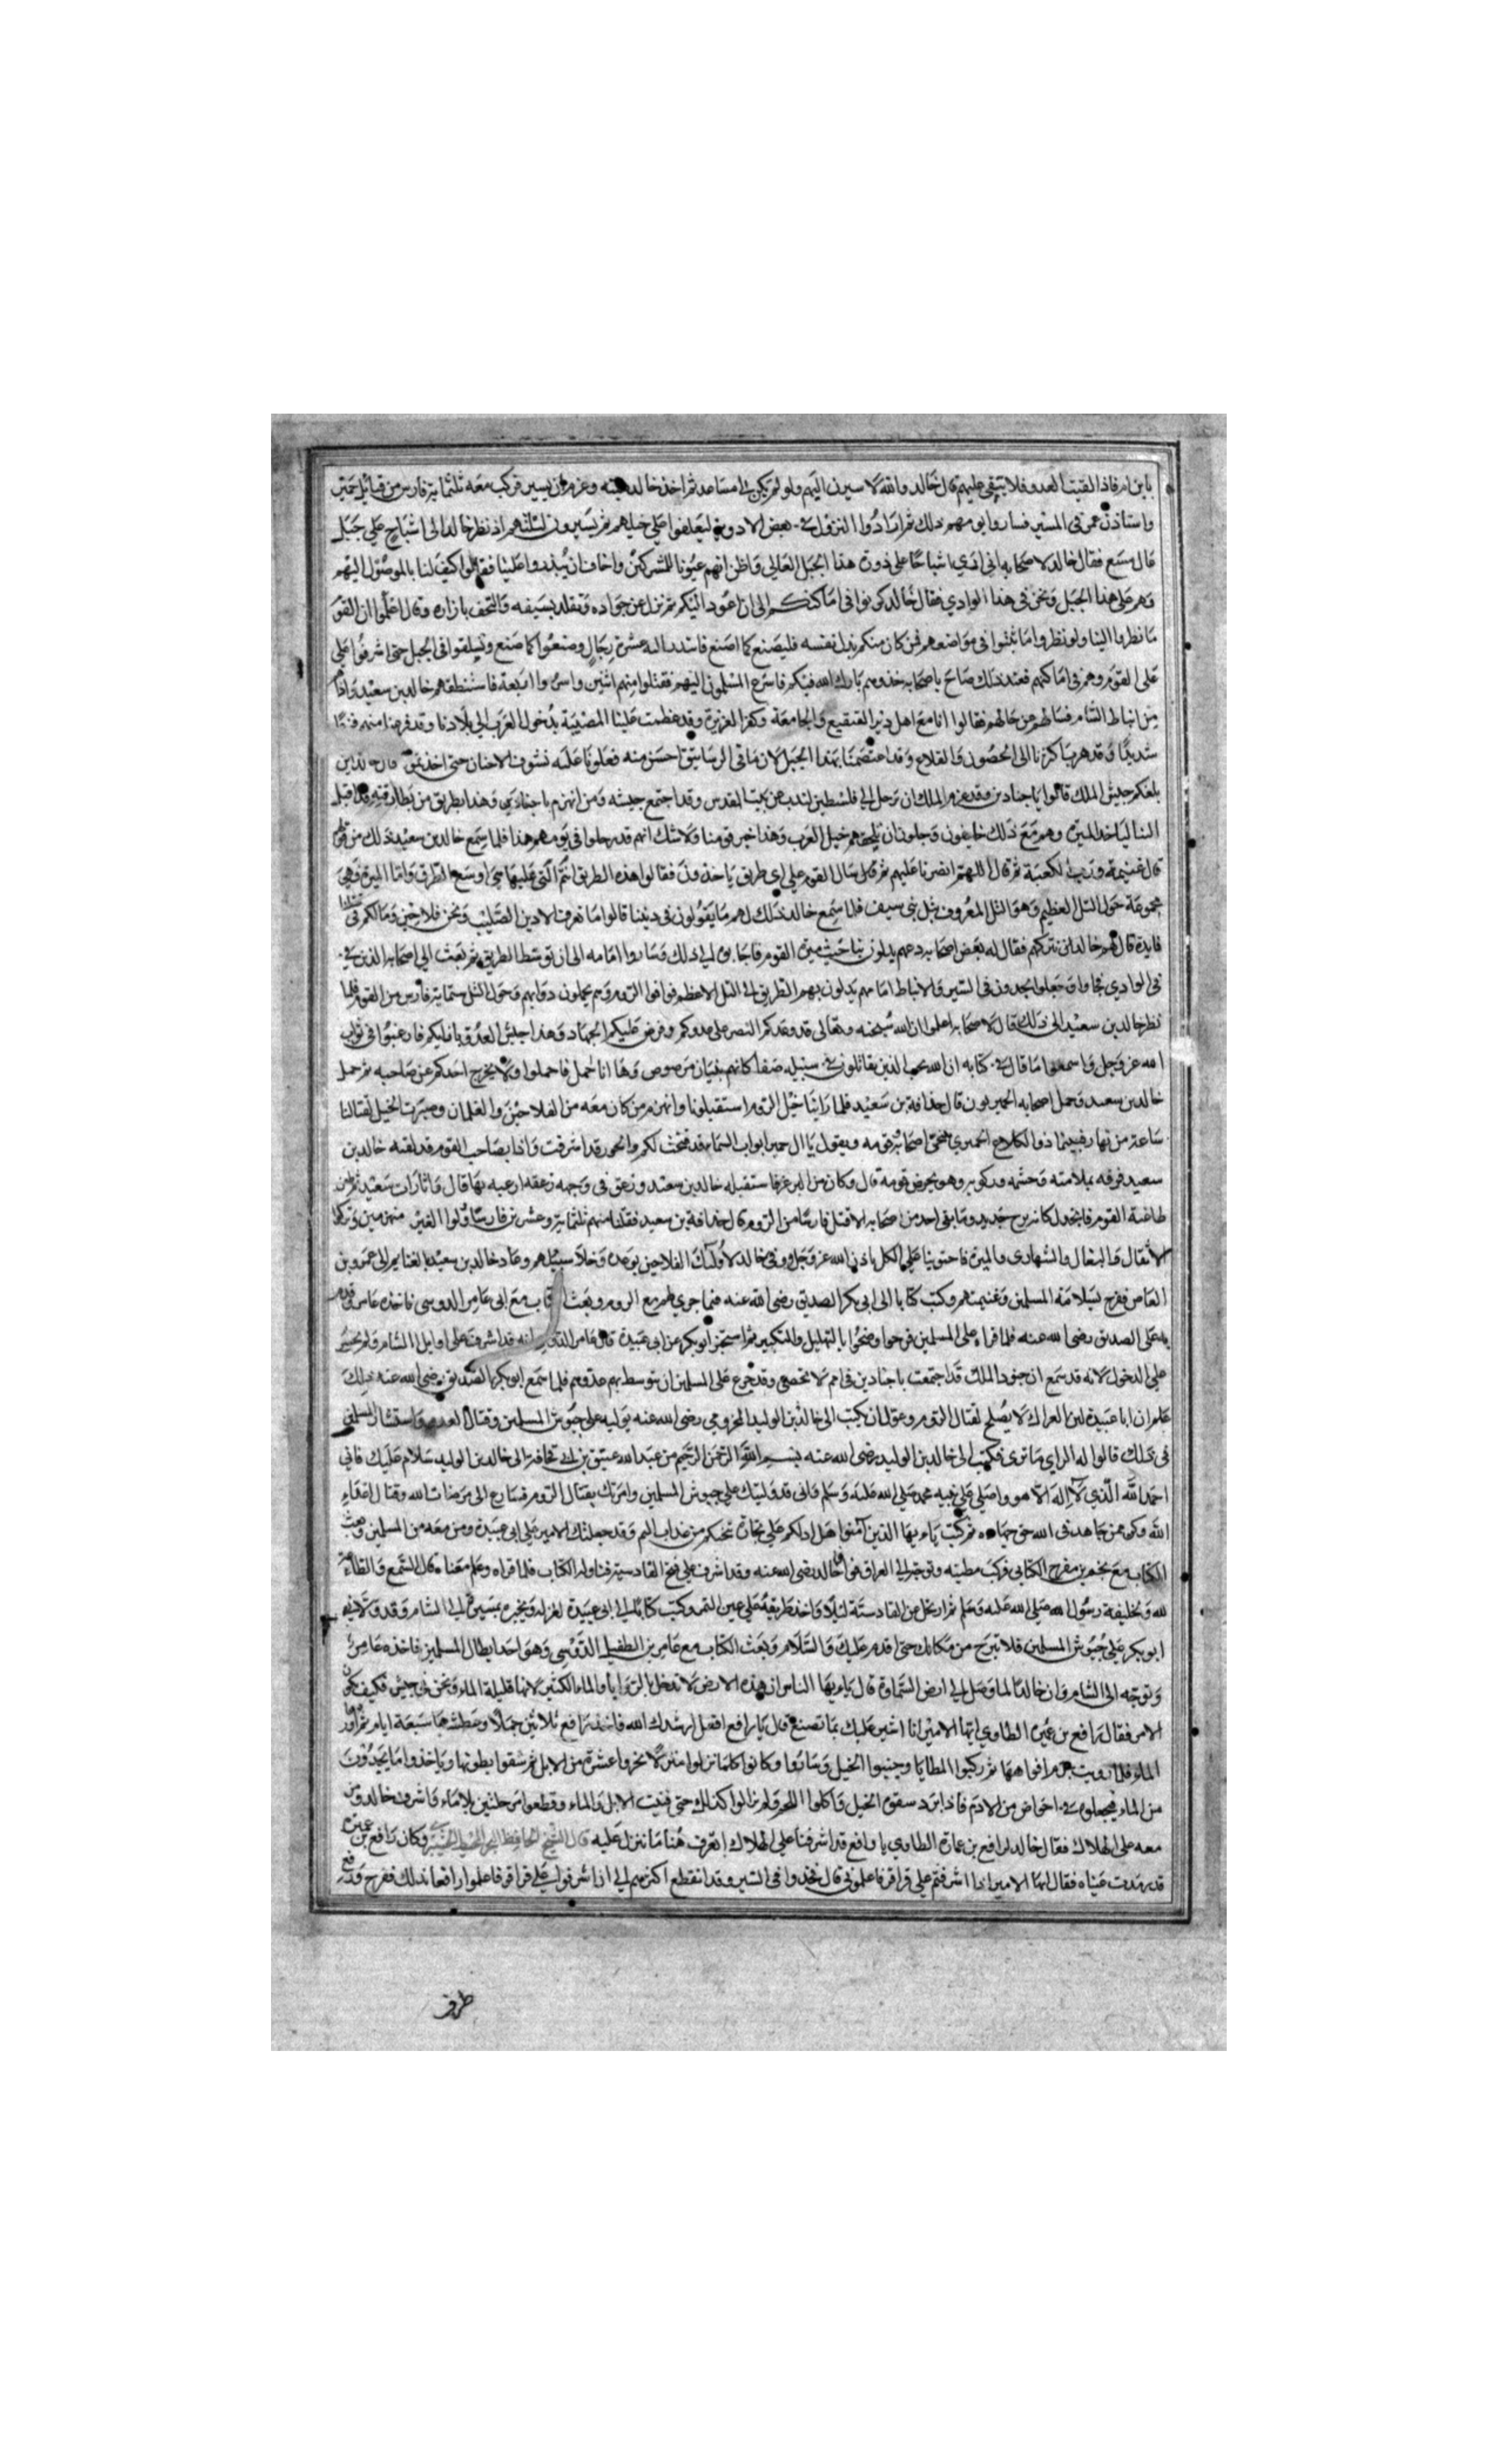 يا بن ام فاذا لقيت العدو فلا تبقى عليهم قال خالد والله لاسيرن اليهم ولو لم يكن لي مساعد ثم اخذ خالد وعزم ان يسير فركب معه ثلثماية فارس من قبايل حمير
واستاذن عمرو في المسير فساروا يومهم ذلك ثم ارادوا النزول في بعض الاودية ليعلفوا على خيلهم ثم يسيرون ليلتهم اذ نظر خالد الى اشباح على جبل
قال فقال خالد لاصحابه اني ارى اشباحا على ذروة هذا الجبل العالي واظن انهم عيونا للمشركين واخاف ان ينذروا علينا فقالوا كيف لنا بالوصول اليهم
وهم على هذا الجبل ونحن في هذا الوادي فقال خالد كونوا في اماكنكم الى ان اعود اليكم ثم نزل عن جواده وتقلد بسيفه والتحف بازاره وقال اعلموا ان القوم
ما نظروا الينا ولو نظروا ما ثبتوا في مواضعهم فمن كان منكم يبذل نفسه فليصنع كما اصنع فابتدر اليه عشرة رجال وصنعوا كما صنع وتسلقوا في الجبل حتى اشرفوا على
على القوم وهم في اماكنهم فعند ذلك صاح باصحابه خذوهم بارك الله فيكم فاسرع المسلمون اليهم فقتلوا منهم اثنين واسروا اربعة فاستنطقهم خالد بن سعيد واذا هم
من انباط الشام فسالهم عن حالهم فقالوا انا مع اهل دير القنقيع والجامعة وكفر العزيزة وقد عظمت علينا المصيبة بدخول العرب الى بلادنا وقد فزعنا منهم فزعا
شديدا وقد هرب اكثرنا الى الحصون والقلاع وقد اعتصمنا بهذا الجبل لان ما في الرساتيق احسن منه فعلونا عليه نشوف الاخبار حتى اخذتمونا قال خالد اين
بلغكم جيش الملك قالوا باجنادين وقد عزم الملك ان يرحل الى فلسطين لنذب عن بيت المقدس وقد اجتمع جيشه ومن انهزم باجنادين وهذا بطريق من بطارقته قد اقبل
الينا لياخذ الميرة وهم مع ذلك خايفون وجلون ان يلحقهم خيل العرب وهذا خبر قومنا ولا شك انهم قد رحلوا في يومهم هذا فلما سمع خالد بن سعيد ذلك من قولهم
قال غنيمة ورب الكعبة ثم قال اللهم انصرنا عليهم ثم قال سال القوم على اي طريق ياخذون فقالوا هذه الطريق التي انتم عليها هي اوسع الطرق واما الميرة فهي
مجموعة حول التل العظيم وهو التل المعروف بتل بني سيف فلما سمع خالد ذلك لهم ما يقولون في ديننا قالوا ما نعرف الا دين الصليب ونحن فلاحين وما لكم في قتلنا
فايدة قال هم خالد ان نتركهم فقال له بعض اصحابه دعهم يدلون بنا حيث ميرة القوم فاجابوا الى ذلك وساروا امامه الى ان توسطا الطريق ثم بعث الى اصحابه الذين في
في الوادي فجاوا وجعلوا يجدون في السير والانباط امامهم يدلون بهم الطريق الى التل الاعظم فوافوا الروم وهم يحملون دوابهم وحول التل ستماية فارس من القوم فلما
نظر خالد بن سعيد الى ذلك قال لاصحابه اعلموا ان الله سبحنه وتعالى قد وعدكم النصر على عدوكم وفرض عليكم الجهاد وهذا جيش العدو بازايكم فارغبوا في ثواب
الله عز وجل واسمعوا ما قال في كتابه ان الله يحب الذين يقاتلون في سبيله صفا كانهم بنيان مرصوص وها انا احمل فاحملوا ولا يخرج احدكم عن صاحبه ثم حمل
خالد بن سعيد وحمل اصحابه الحميريون قال حذافة بن سعيد فلما راينا خيل الروم استقبلونا وانهزم من كان معه من الفلاحين والغلمان وصبرت الخيل لقتالنا
ساعة من نهار فبينما ذو الكلاع الحميري يحمي اصحابه وقومه ويقول يا ال حمير ابواب السماء قد فتحت لكم والحور قد اشرفت واذا بصاحب القوم قد لقيه خالد بن
سعيد فعرفه بلامته وحشمه وركوبه وهو يحرض قومه قال وكان من فاستقبله خالد بن سعيد وزعق في وجهه زعقة ارعبه بها قال واثارات سعيد ثم طعن
طاغية القوم فانجدل كانه برج حديد وما بقي احد من اصحابه الا قتل فارسا من الروم قال حذافة بن سعيد فقتلنا منهم ثلثماية وعشرين فارسا وولوا الغير منهزمين وتركوا
الاثقال والبغال والشهاري والميرة فاحتوينا على الكل باذن الله عز وجل ووفى خالد لاولئك الفلاحين بوعده وخلا سبيلهم وعاد خالد بن سعيد بالغنايم الى عمرو بن
العاص ففرح بسلامة المسلمين وغنيمتهم وكتب كتابا الى ابي بكر الصديق رضى الله عنه فيما جرى لهم مع الروم وبعث الكتاب مع ابي عامر الدوسي فاخذه عامر وقدم
به على الصديق رضى الله عنه فلما قراه على المسلمين فرحوا وضجوا بالتهليل والتكبير ثم استخبر ابو بكر عن ابي عبيدة قال عامر انه قد اشرف على اوايل الشام ولم يجسر
على الدخول لانه قد سمع ان جنود الملك قد اجتمعت باجنادين في امم لا تحصى وقد جزع على المسلمين ان يتوسط بهم عدوهم فلما سمع ابو بكر الصديق رضى الله عنه ذلك
علم ان ابا عبيدة لين العراك لا يصلح لقتال الروم وعول ان يكتب الى خالد بن الوليد المخزومي رضى الله عنه يوليه على جيوش المسلمين وقتال العدو واستشار المسلمين
في ذلك قالوا له الراي ما ترى فكتب الى خالد بن الوليد رضى الله عنه بسم الله الرحمن الرحيم من عبد الله عتيق بن ابي قحافة الى خالد بن الوليد سلام عليك فاني
احمد الله الذي لا اله الا هو واصلي على نبيه محمد صلى الله عليه وسلم واني قد وليتك على جيوش المسلمين وامرتك بقتال الروم فسارع الى مرضات الله وقتال اعداء
الله وكن ممن جاهد في الله حق جهاده ثم كتب يا ايها الذين آمنوا هل ادلكم على تجارة تنجيكم من عذاب اليم وقد جعلتك الامير على ابي عبيدة ومن معه من المسلمين وبعث
الكتاب مع نجم بن مفرح الكناني فركب مطيته وتوجه الى العراق فوافا خالد رضى الله عنه وقد اشرف على فتح القادسية فناوله الكتاب فلما قراه وعلم معناه قال السمع والطاعة
لله ولخليفة رسول الله صلى الله عليه وسلم ثم ارتحل من القادسية ليلا واخذ طريقه على عين التمر وكتب كتابا الى ابي عبيدة لعزله ويخبره بمسيره الى الشام وقد ولاني
ابو بكر على جيوش المسلمين فلا تبرح من مكانك حتى اقدم عليك والسلام وبعث الكتاب مع عامر بن الطفيل الدوسي وهو احد ابطال المسلمين فاخذه عامر
وتوجه الى الشام وان خالدا لما وصل الى ارض السماوة قال يا ايها الناس ان هذه الارض لا تدخل الا بالروايا والماء الكثير لانها قليلة الماء ونحن في جيش فكيف يكون
الامر فقال رافع بن عميرة الطاوي ايها الامير انا اشير عليك بما تصنع قال يا رافع افعل ارشدك الله فاخذ رافع ثلاثين جملا وعطشها سبعة ايام ثم اوردها
الماء فلما رويت حزم افواهها ثم ركبوا المطايا وجنبوا الخيل وساروا وكانوا كلما نزلوا منزلا نحروا عشرة من الابل ثم شقوا بطونها وياخذوا ما يجدون
من الماء فيجعلوه في احواض من الادم فاذا برد سقوه الخيل واكلوا اللحم ولم يزالوا كذلك حتى فنيت الابل والماء وقطعوا مرحلتين بلا ماء واشرف خالد ومن
معه على الهلاك فقال خالد لرافع بن عمارة الطاوي يا رافع قد اشرفنا على الهلاك اتعرف هنا ما ننزل عليه قال الشيخ الحافظ وكان رافع بن عميرة
قد رمدت عيناه فقال ايها الامير اذا اشرفتم على قراقر فاعلموني قال فجدوا في السير وقد انقطع اكثرهم الى ان اشرفوا على قراقر فاعلموا رافعا بذلك ففرح ورفع
طرف